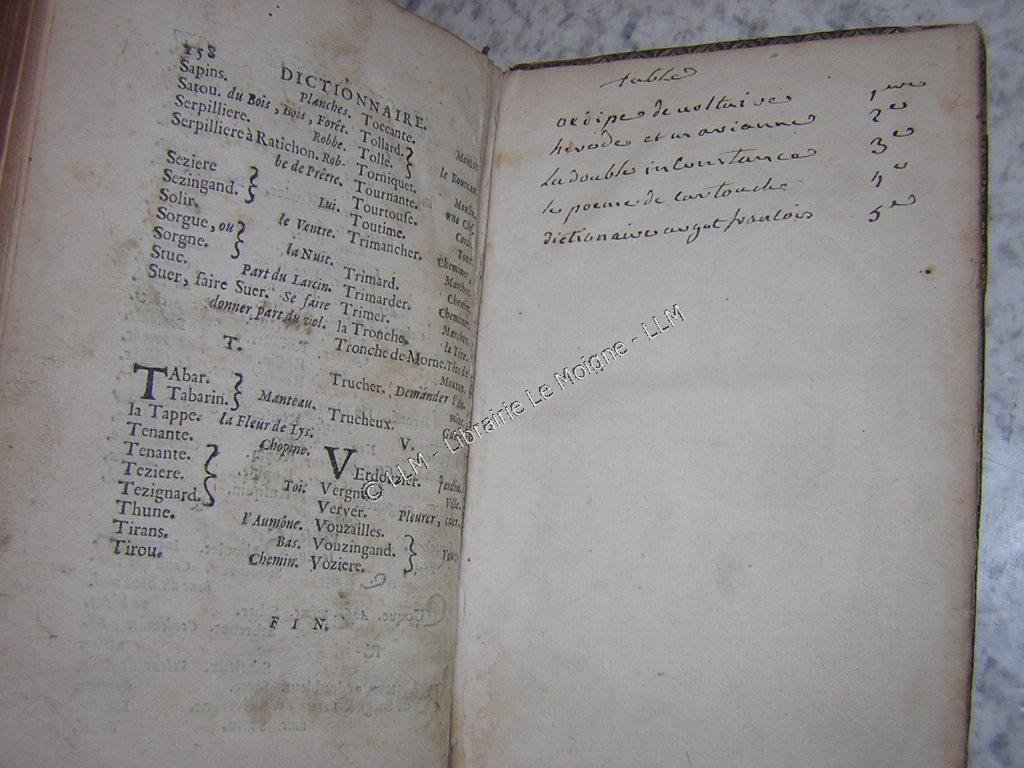 158
DICTIONNAIRE.
Sapins. Planches.
Satou. du Bois, Bois, Forêt.
Serpilliere. Robbe.
Serpilliere à Ratichon. Rob-
be de Prêtre.
Seziere
Sezingand. } Lui.
Solir. le Ventre.
Sorgue, ou
Sorgne. } la Nuit.
Stuc. Part du Larcin.
Suer, faire Suer. Se faire
donner part du vol.
T.
TAbar.
Tabarin. } Manteau.
la Tappe. la Fleur de Lys.
Tenante. Chopine.
Tenante.
Teziere. } Toi.
Tezignard.
Thune. l'Aumône.
Tirans. Bas.
Tirou. Chemin.
Toccante.
Tollard.
Tolle. }
Torniquet.
Tournante.
Tourtouse.
Toutime.
Trimancher.
Trimard.
Trimarder.
Trimer.
la Tronche. la Tête.
Tronche de Morne. Tête de
Mouton.
Trucher. Demander l'
Trucheux.
V.
VErdouzier. Jardin.
Vergne. Ville.
Verver. Pleurer, crier.
Vouzailles.
Vouzingand. }
Voziere.
FIN.
table
oedipe de voltaire 1ere
herode et marianne 2e
La double inConstance 3e
le poeme de cartouche 4e
dictionaire argot francois 5e
© LLM - Librairie Le Moigne - LLM